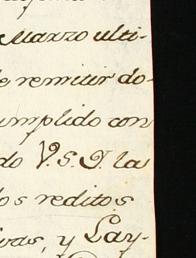 Marzo ulti-
remitir do-
umplido con
do V.S.Y. la
os reditos
vas, y Lay-